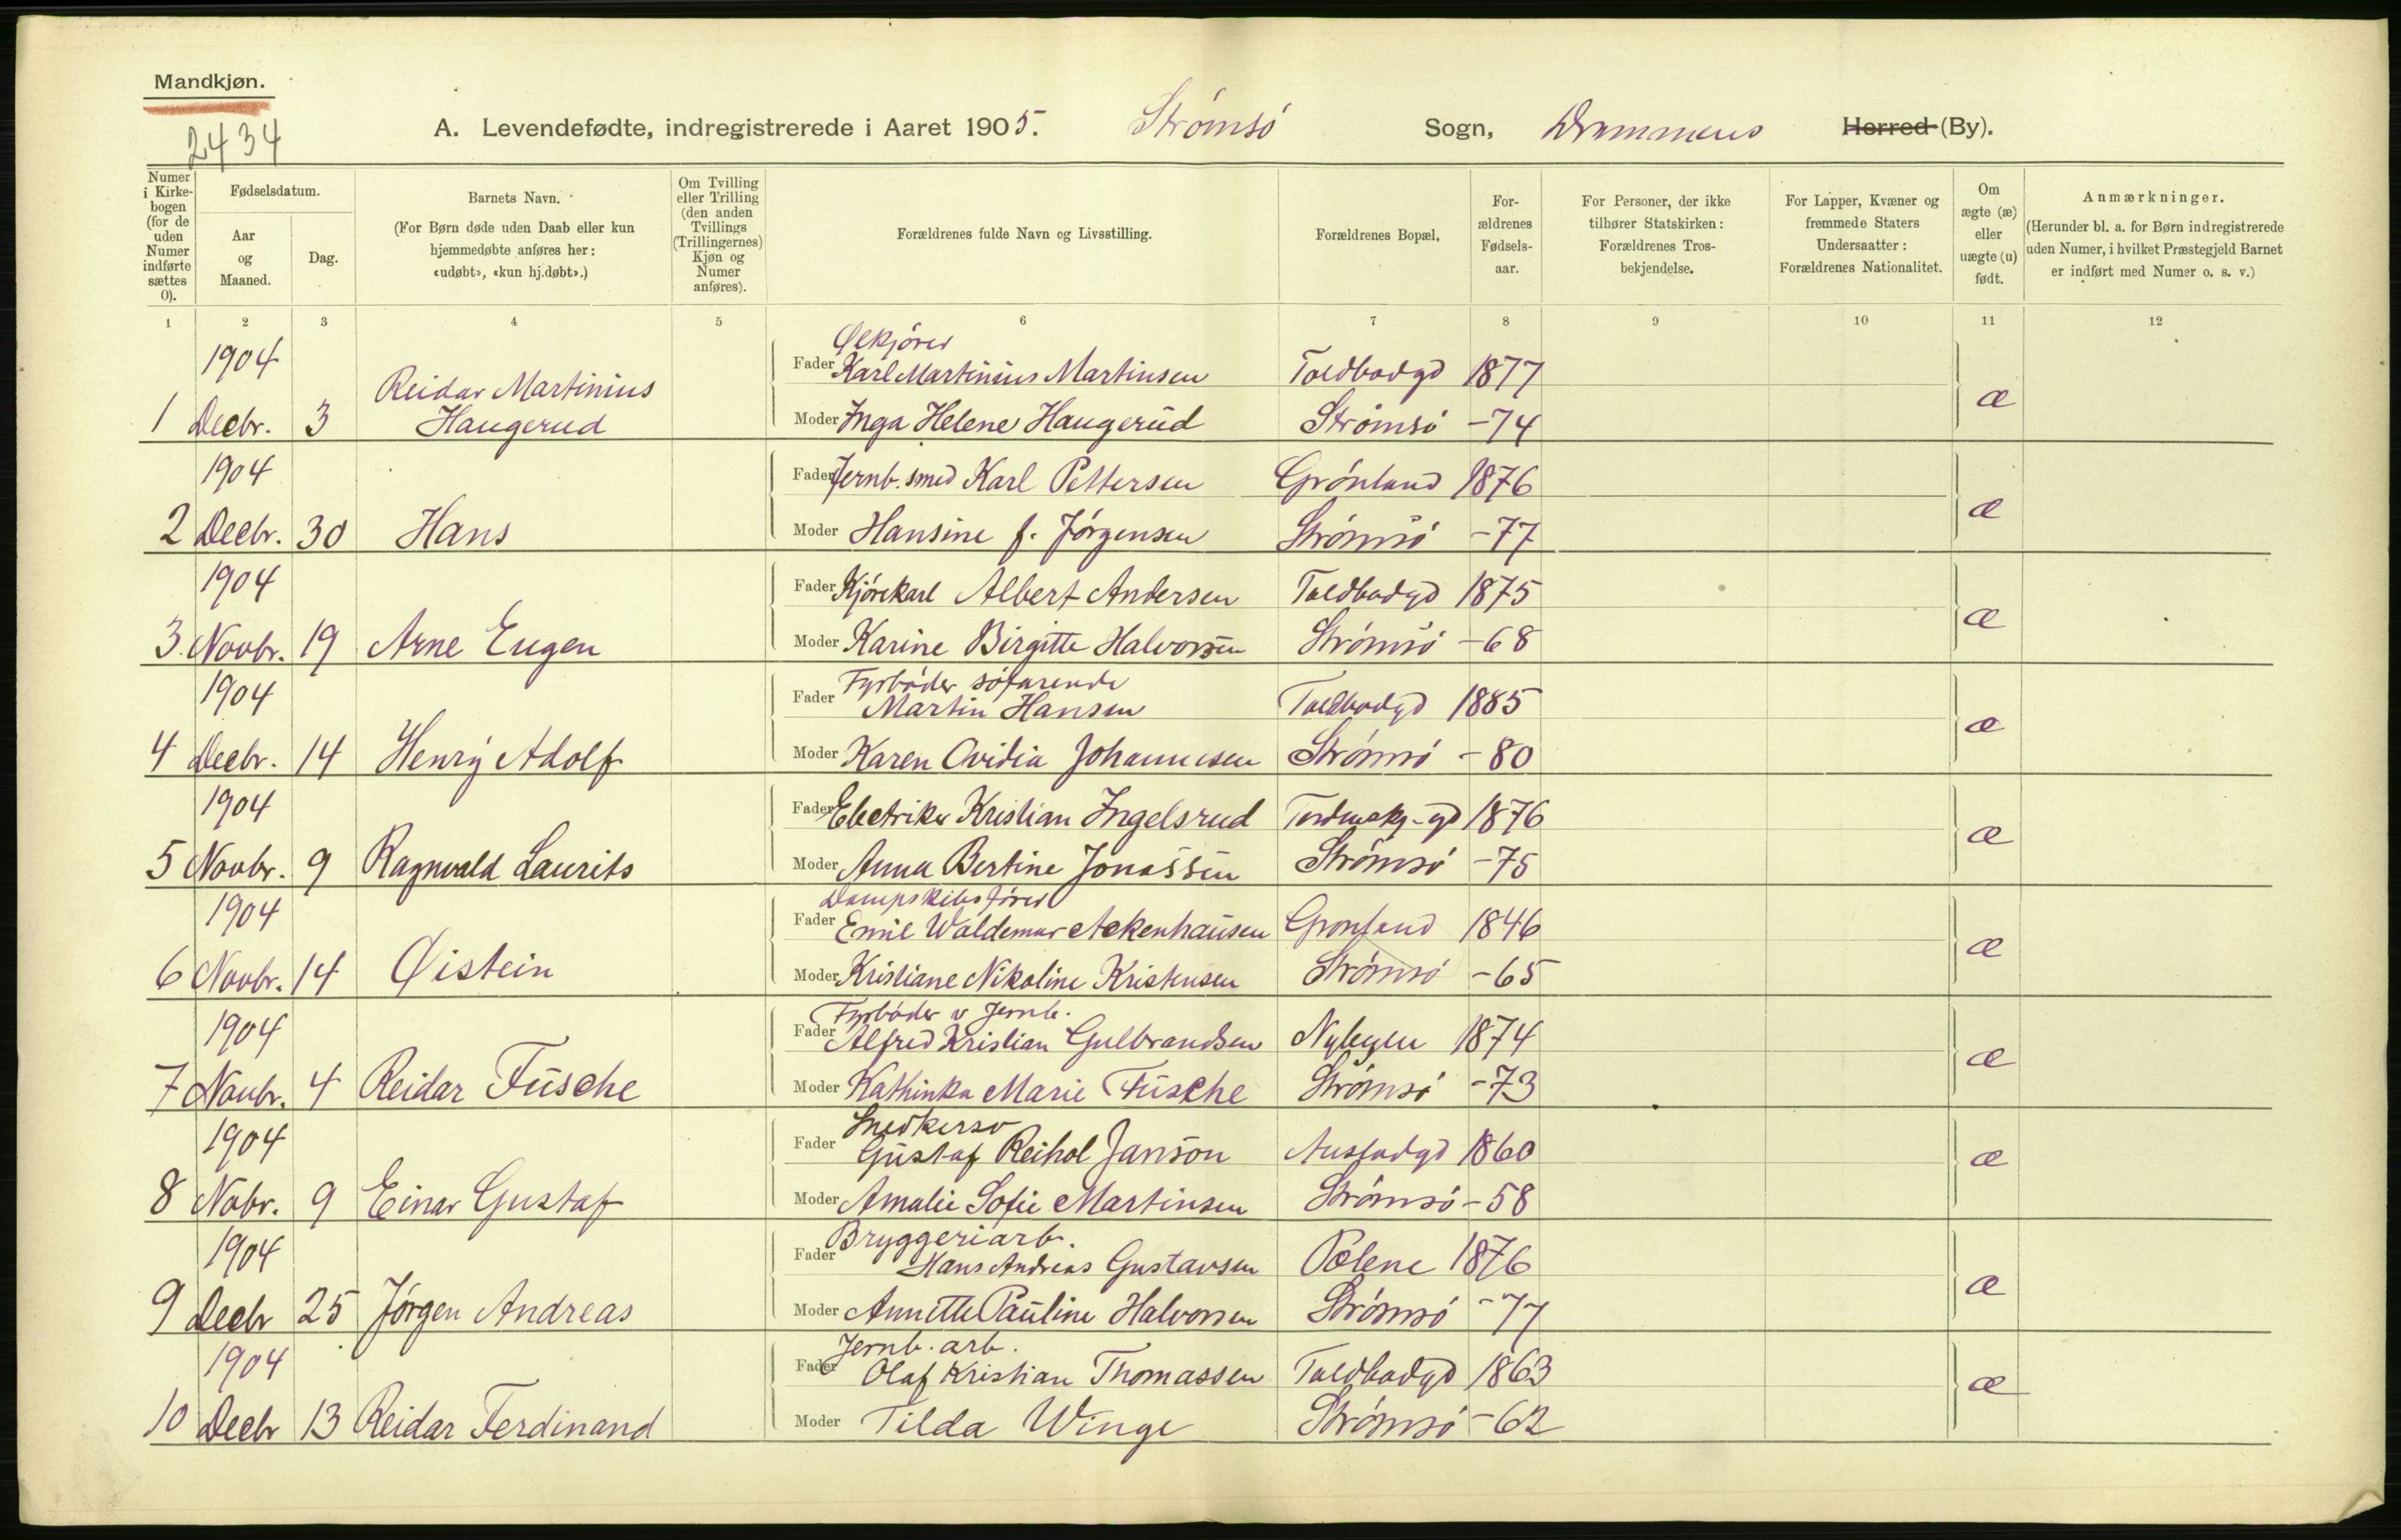 Mandkjøn.
2434
A. Levendefødte, indregistrerede i Aaret 1905. Strømsö Sogn, Drammens Herred (By).
Numer i Kirkebogen (for de uden Numer indførte sættes 0).
Fødselsdatum.
Aar og Maaned.
Dag.
Barnets Navn.
(For Børn døde uden Daab eller kun hjemmedøbte anføres her: «udøbt», «kun hj.døbt».)
Om Tvilling eller Trilling (den anden Tvillings (Trillingernes) Kjøn og Numer anføres).
Forældrenes fulde Navn og Livsstilling.
Forældrenes Bopæl,
Forældrenes Fødselsaar.
For Personer, der ikke tilhører Statskirken: Forældrenes Trosbekjendelse.
For Lapper, Kvæner og fremmede Staters Undersaatter: Forældrenes Nationalitet.
Om ægte (æ) eller uægte (u) født.
Anmærkninger.
(Herunder bl. a. for Børn indregistrerede uden Numer, i hvilket Præstegjeld Barnet er indført med Numer o. s. v.)
1 2 3 4 5 6 7 8 9 10 11 12
Ølkjörer
1904 Reidar Martinius Fader Karl Martinius Martinsen Toldbodgd 1877
1 Decbr. 3 Haugerud Moder Inga Helene Haugerud Strömsö -74 æ
1904 Fader Jernb. smed Karl Pettersen Grönland 1876
2 Decbr. 30 Hans Moder Hansine f. Jörgensen Strömsö -77 æ
1904 Fader Kjörekarl Albert Andersen Toldbodgd 1875
3 Novbr. 19 Arne Eugen Moder Karine Birgitte Halvorsen Strömsö -68 æ
Fyrböder söfarende
1904 Fader Martin Hansen Toldbodgd 1885
4 Decbr. 14 Henry Adolf Moder Karen Ovidia Johannesen Strömsö -80 æ
1904 Fader Electriker Kristian Ingelsrud 1876
5 Novbr. 9 Ragnvald Laurits Moder Anna Bertine Jonassen Strömsö -75 æ
Dampskibsförer
1904 Fader Emil Waldemar Ackenhausen Gronland 1846
6 Novbr. 14 Øistein Moder Kristiane Nikoline Kristensen Strömsö -65 æ
Fyrböder v Jernb.
1904 Fader Alfred Kristian Gulbrandsen Nybyen 1874
7 Novbr. 4 Reidar Füsche Moder Kathinka Marie Füsche Strömsö -73 æ
Snedkersv
1904 Fader Gustaf Reihol Janson 1860
8 Nobr. 9 Einar Gustaf Moder Amalie Sofie Martinsen Strömsö -58 æ
Bryggeriarb.
1904 Fader Hans Andreas Gustavsen Tölene 1876
9 Decbr 25 Jörgen Andreas Moder Annette Pauline Halvorsen Strömsö -77 æ
Jernb. arb.
1904 Fader Olaf Kristian Thomassen Toldbodgd 1863
10 Decbr 13 Reidar Ferdinand Moder Tilda Winge Strömsö -62 æ